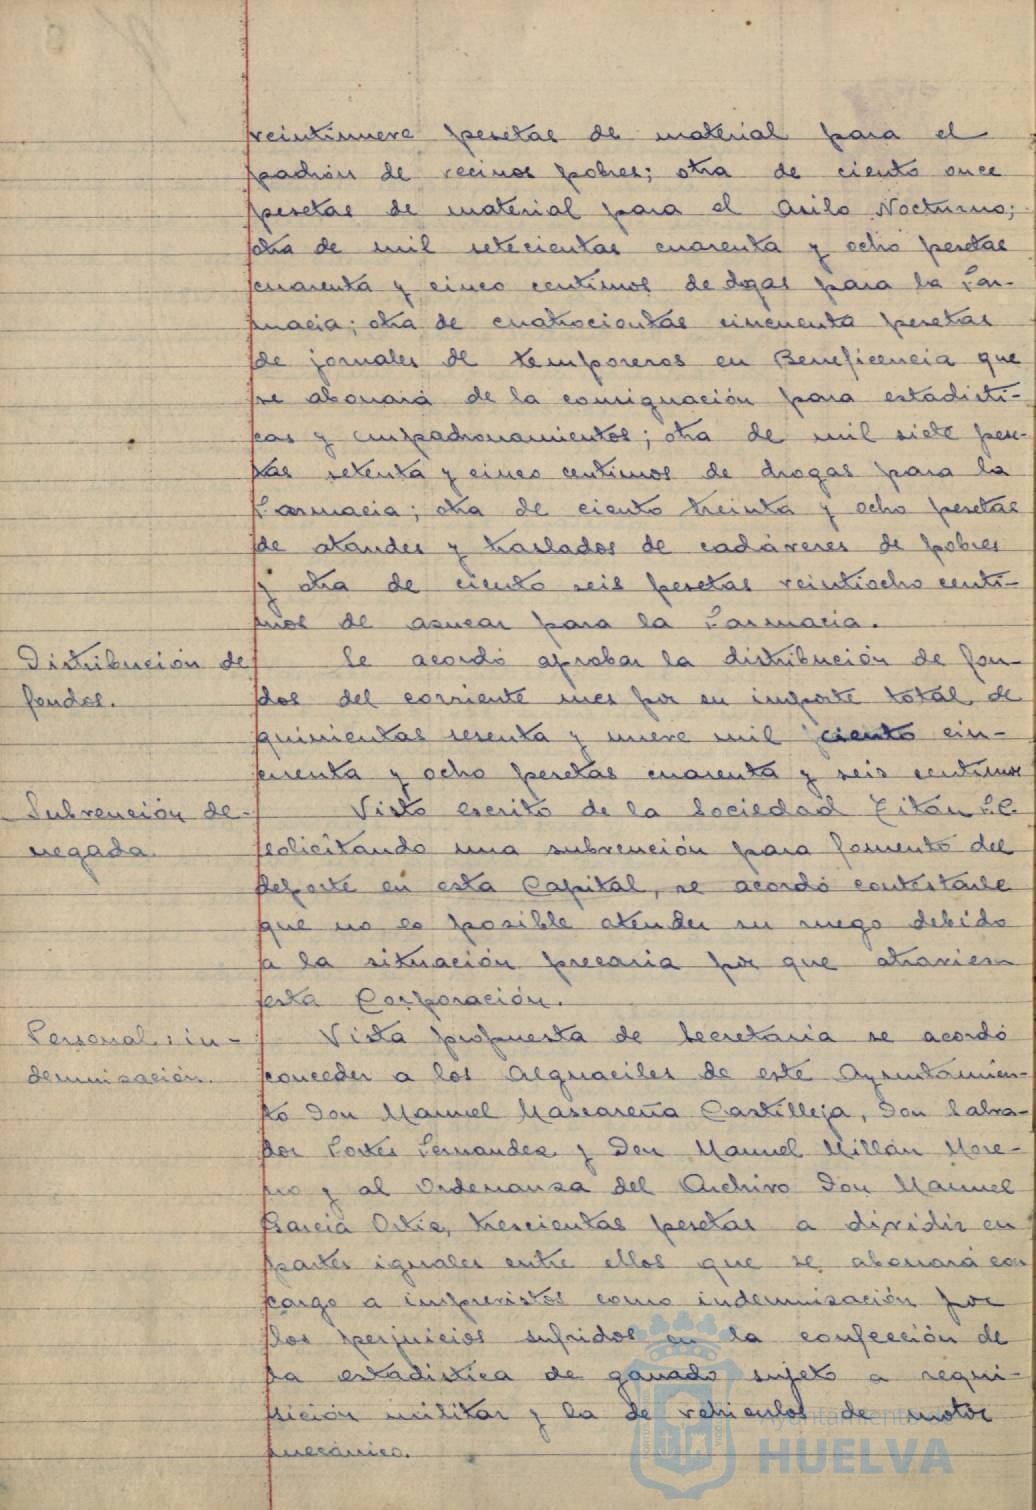 veintinueve pesetas de material para el
padrón de vecinos pobres; otra de ciento once
pesetas de material para el Asilo Nocturno;
otra de mil setecientas cuarenta y ocho pesetas
cuarenta y cinco centimos de dogas para la Far-
macia; otra de cuatrocientas cincuenta pesetas
de jornales de temporeros en Beneficencia que
se abonará de la consignación para estadisti-
cas y empadronamientos; otra de mil siete pese-
tas setenta y cinco centimos de drogas para la
Farmacia; otra de ciento treinta y ocho pesetas
de ataudes y traslados de cadáveres de pobres
y otra de ciento seis pesetas veintiocho centi-
mos de azucar para la Farmacia.
Distribución de
fondos.
Se acordó aprobar la distribución de fon-
dos del corriente mes por su importe total de
quinientas sesenta y nueve mil ciento cin-
cuenta y ocho pesetas cuarenta y seis centimos
Subvención de-
negada.
Visto escrito de la Sociedad Titán F.C.
solicitando una subvención para fomento del
deporte en esta Capital, se acordó contestarle
que no es posible atender su ruego debido
a la situación precaria por que atraviesa
esta Corporación.
Personal: in-
demnización.
Vista propuesta de Secretaria se acordó
conceder a los Alguaciles de este Ayuntamien-
to Don Manuel Mascareña Castilleja, Don Salva-
dor Cortés Fernandez y Don Manuel Millán More-
no y al Ordenanza del Archivo Don Manuel
Garcia Ortiz, trescientas pesetas a dividir en
partes iguales entre ellos que se abonará con
cargo a imprevistos como indemnización por
los perjuicios sufridos en la confección de
la estadistica de ganado sujeto a requi-
sición militar y la de vehiculos de motor
mecánico.
Ayuntamiento
HUELVA